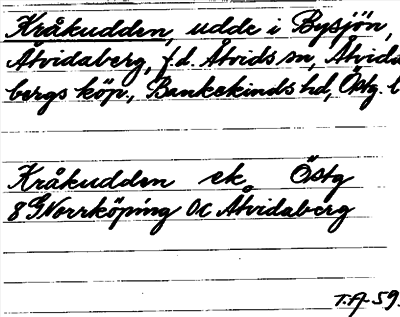 Kråkudden, udde i Bysjön,
Åtvidaberg, f.d. Åtvids sn, Åtvida
bergs köp., Bankekinds hd, Östg. l
Kråkudden ek. Östg
8G Norrköping OC Åtvidaberg
T:A- 59.